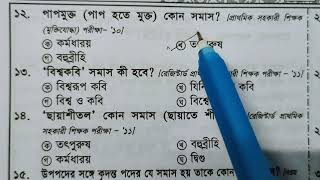 ১২. পাপমুক্ত (পাপ হতে মুক্ত) কোন সমাস? [প্রাথমিক সহকারী শিক্ষক
(মুক্তিযোদ্ধা) পরীক্ষা - '১০]
ক কর্মধারয়
গ বহুব্রীহি
১৩. 'বিশ্বকবি' সমাস কী হবে? [রেজিস্টার্ড প্রাথমিক সহকারী শিক্ষক পরীক্ষা - '১১]
ক বিশ্বরূপ কবি
খ যিনি
গ বিশ্ব ও কবি
ঘ
১৪. 'ছায়াশীতল' কোন সমাস (ছায়াতে শী [রেজিস্টার্ড প্রাথমিক
সহকারী শিক্ষক পরীক্ষা - '১১]
ক তৎপুরুষ
খ বহুব্রীহি
গ কর্মধারয়
ঘ দ্বিগু
১৫. উপপদের সঙ্গে কৃদন্ত পদের যে সমাস হয় তাকে কোন